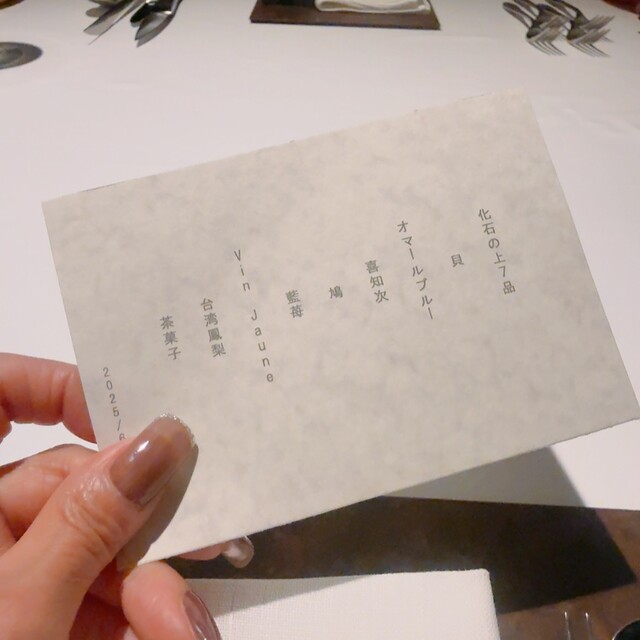 化石の上7品
貝
オマールブルー
喜知次
鳩
藍苺
Vin Jaune
台湾鳳梨
茶菓子
2025/6